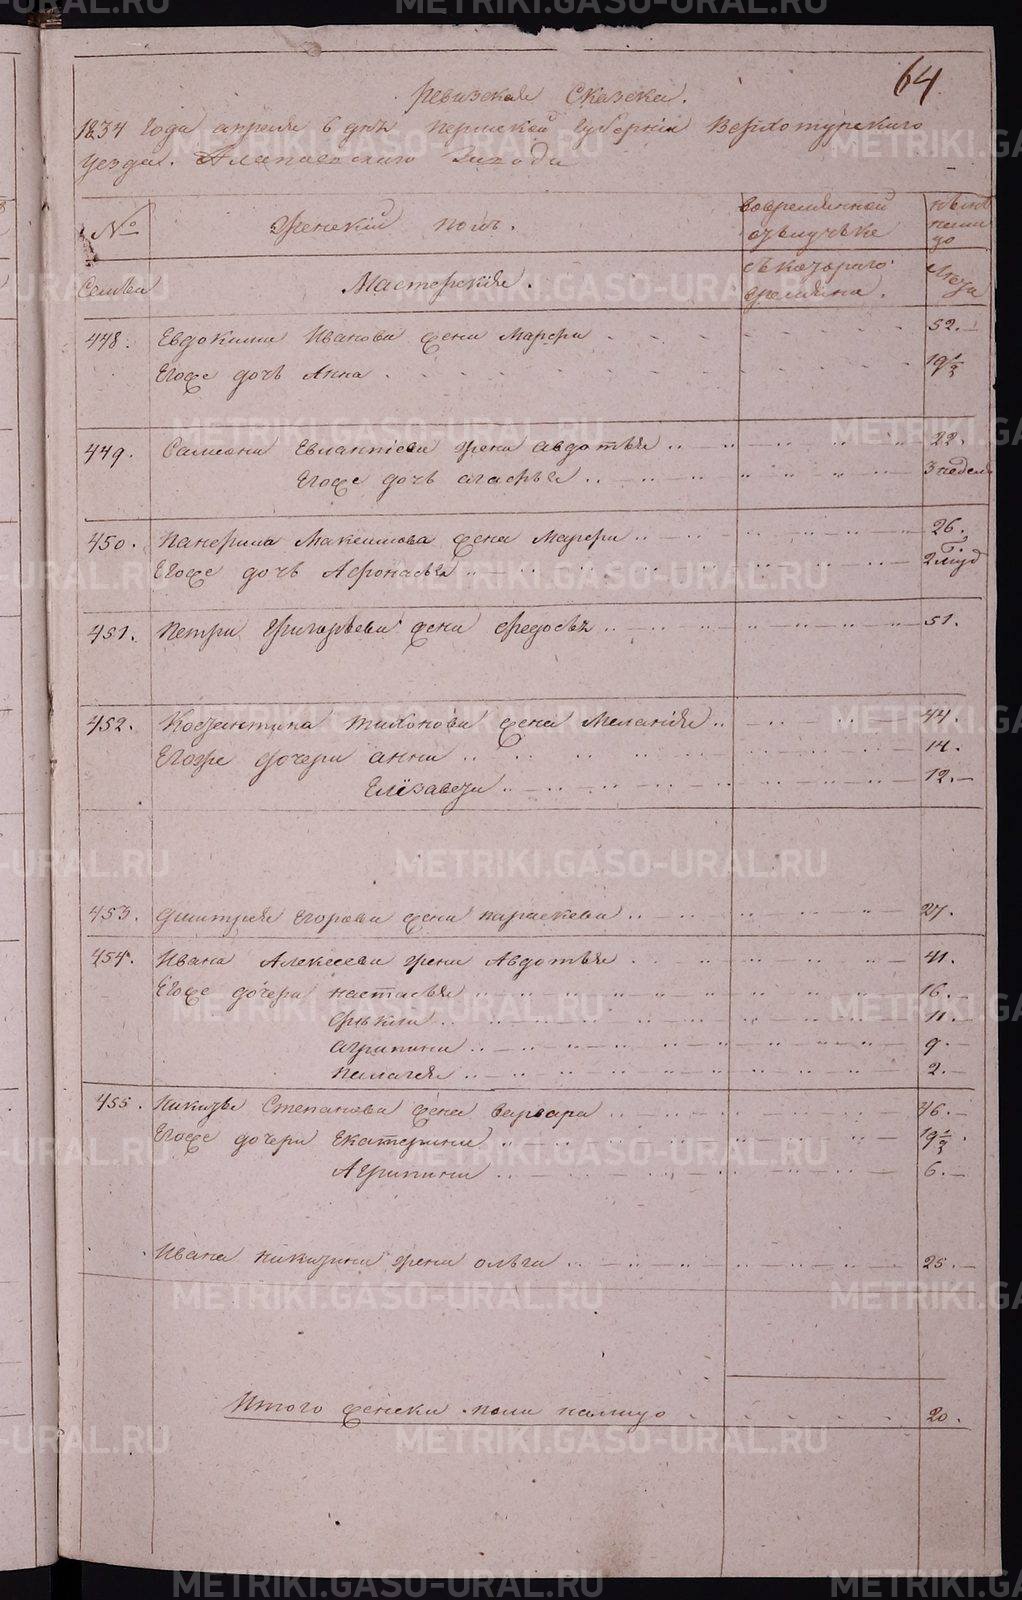 64
Ревизская Сказска.
1834 года апреля 6 дня Пермской Губернiи Верхотурскаго
уезда. Алапаевскаго Завода
№ Женскiй полъ. вовременной отлучьке
Семьи Мастерскiя. съ котораго времяна. Лета
448. Евдокима Иванова жена Марфа 52.
Егоже дочь Анна 19 1/2
449. Самсона Евлампiева жена авдотья 22.
Егоже дочь агафья 3 недели
450. Панфила Максимова жена Марфа 26.
Егоже дочь Афонасья
451. Петра Григорьева жена Федосья 51.
452. Костантина тихонова жена Меланiя 44.
Егоже дочери анна 14.
Елизавета 12.
453. дмитрея Егорова жена параскева 27.
454. Ивана Алексеева жена Авдотья 41.
Егоже дочери настасья 16.
Фёкла 11.
агрипина 9.
палагея 2.
455. Никиты Степанова жена варвара 46.
Егоже дочери Екатерина 19 1/2.
Агрипина 6.
Ивана никитина жена ольга 25.
Итого женска пола налицо 20.
METRIKI.GASO-URAL.RU